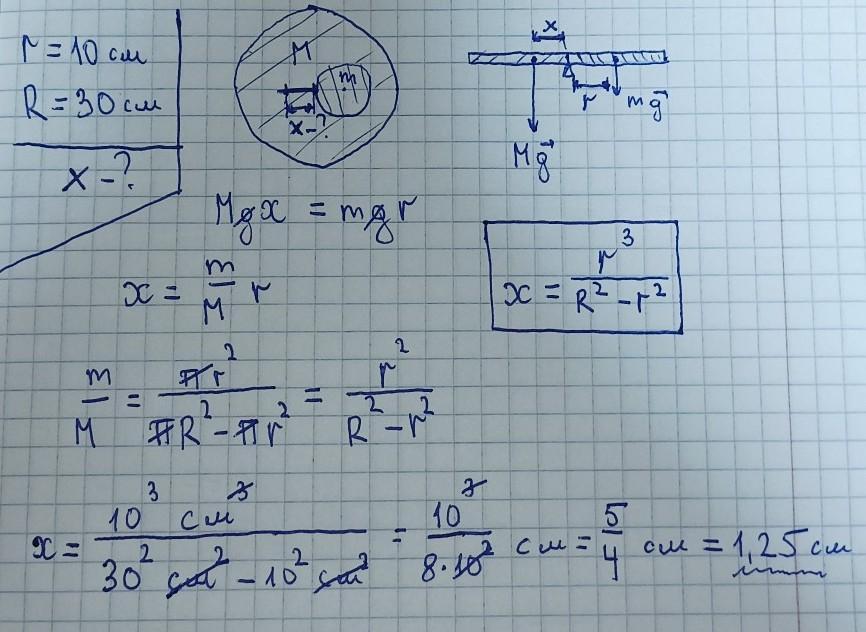 r = 10 см
R = 30 см
x - ?
M
m
x - ?
x
r
mg⃗
Mg⃗
Mgx = mgr
x = m/M r
x = r³/(R² - r²)
m/M = πr²/(πR² - πr²) = r²/(R² - r²)
x = 10³ см³/(30² см² - 10² см²) = 10³/(8·10²) см = 5/4 см = 1,25 см